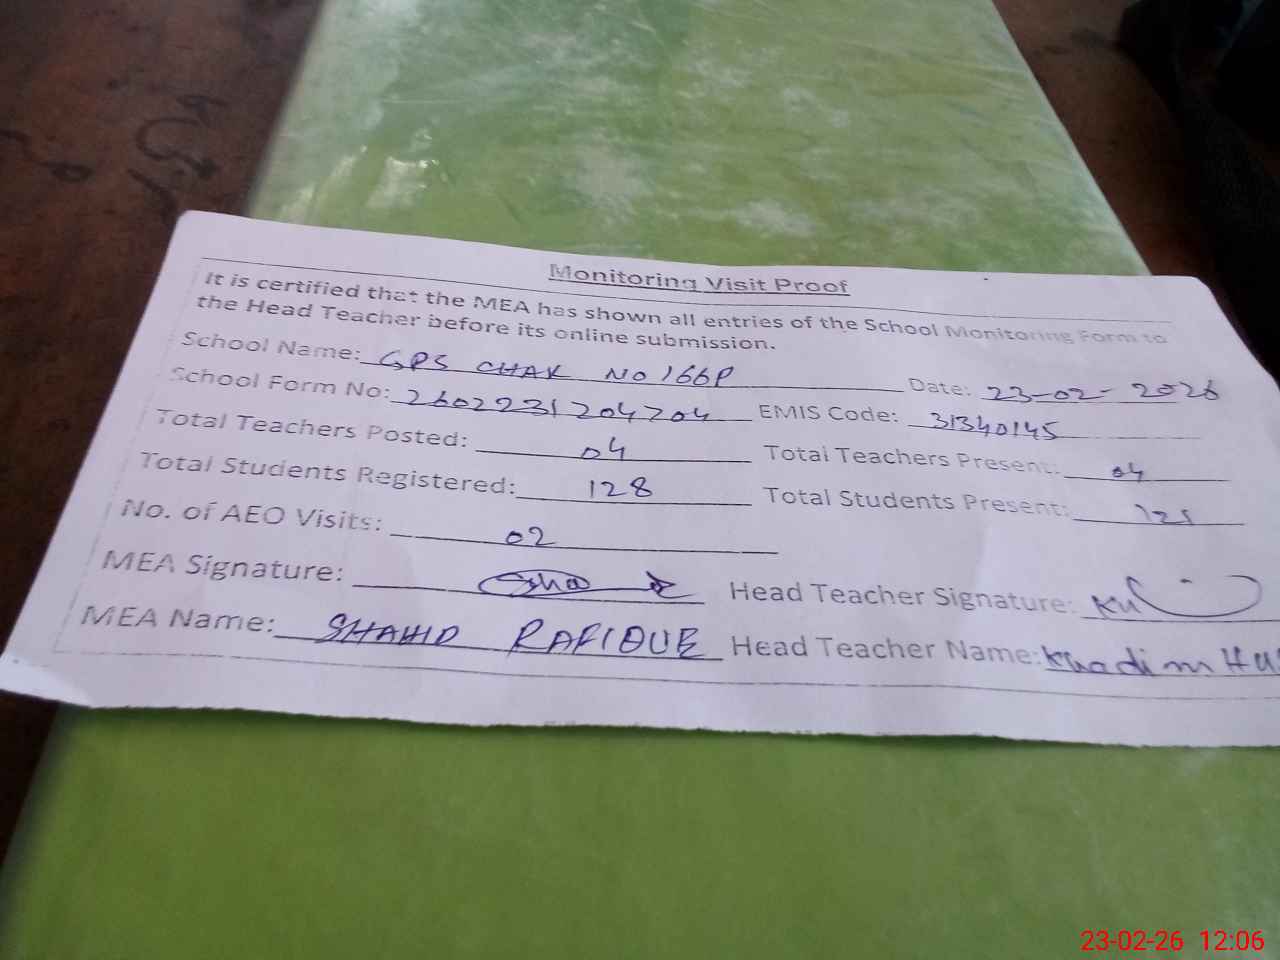 Monitoring Visit Proof
It is certified that the MEA has shown all entries of the School Monitoring Form to
the Head Teacher before its online submission.
School Name: GPS CHAK NO 166P Date: 23-02-2026
School Form No: 2602231204204 EMIS Code: 31340145
Total Teachers Posted: 04 Total Teachers Present: 04
Total Students Registered: 128 Total Students Present: 125
No. of AEO Visits: 02
MEA Signature: Head Teacher Signature:
MEA Name: SHAHID RAFIQUE Head Teacher Name: Khadim
23-02-26 12:06